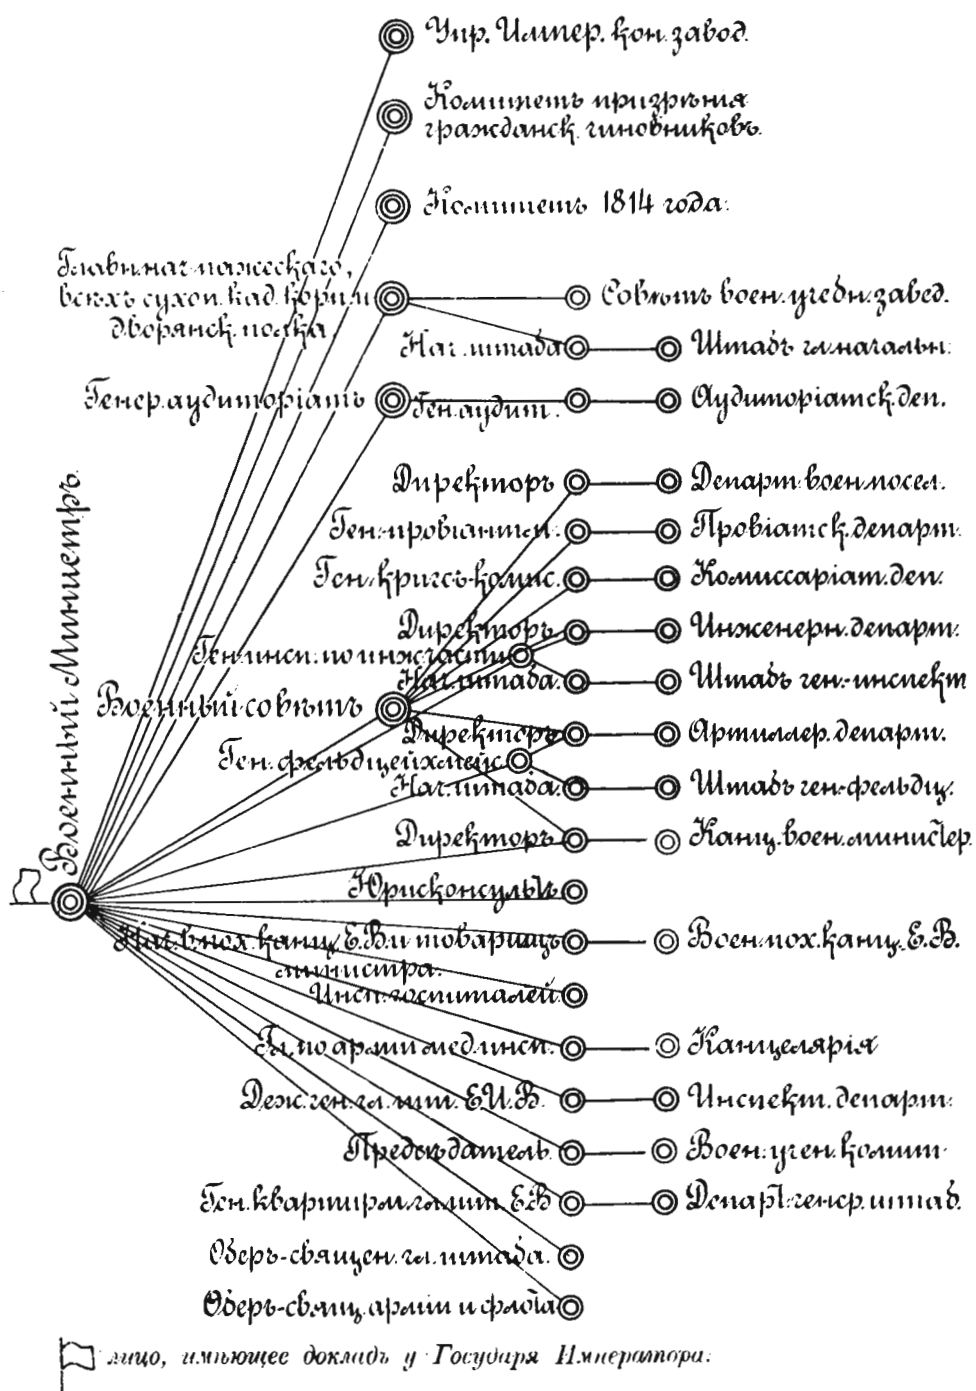 Упр. Импер. кон. завод.
Комитетъ призрѣнія
гражданск. чиновниковъ.
Комитетъ 1814 года.
Главн. нач. пажескаго,
всѣхъ сухоп. кад. корп. и
дворянск. полка
Совѣтъ воен. учебн. завед.
Нач. штаба
Штабъ гл. начальн.
Генер. аудиторіатъ
Ген. аудит.
Аудиторіатск. деп.
Военный Министръ.
Директоръ
Департ. воен. посел.
Ген. провіантм.
Провіатск. департ.
Ген. кригсъ-комис.
Комиссаріат. деп.
Директоръ
Инженерн. департ.
Ген. инсп. по инж. части
Нач. штаба.
Штабъ ген.-инспект
Военный совѣтъ
Директоръ
Артиллер. департ.
Ген. фельдцейхмейс.
Нач. штаба.
Штабъ ген.-фельдц.
Директоръ
Канц. воен. министер.
Юрисконсультъ
Нач. в. пох. канц. Е. В. и товарищъ
министра.
Воен. пох. канц. Е. В.
Инсп. госпиталей
Гл. по арміи мед. инсп.
Канцелярія
Деж. ген. гл. шт. Е. И. В.
Инспект. департ.
Предсѣдатель
Воен. учен. комит.
Ген. квартирм. гл. шт. Е В
Департ. генер. штаб.
Оберъ-священ. гл. штаба.
Оберъ-свящ. арміи и флота
лицо, имѣющее докладъ у Государя Императора.